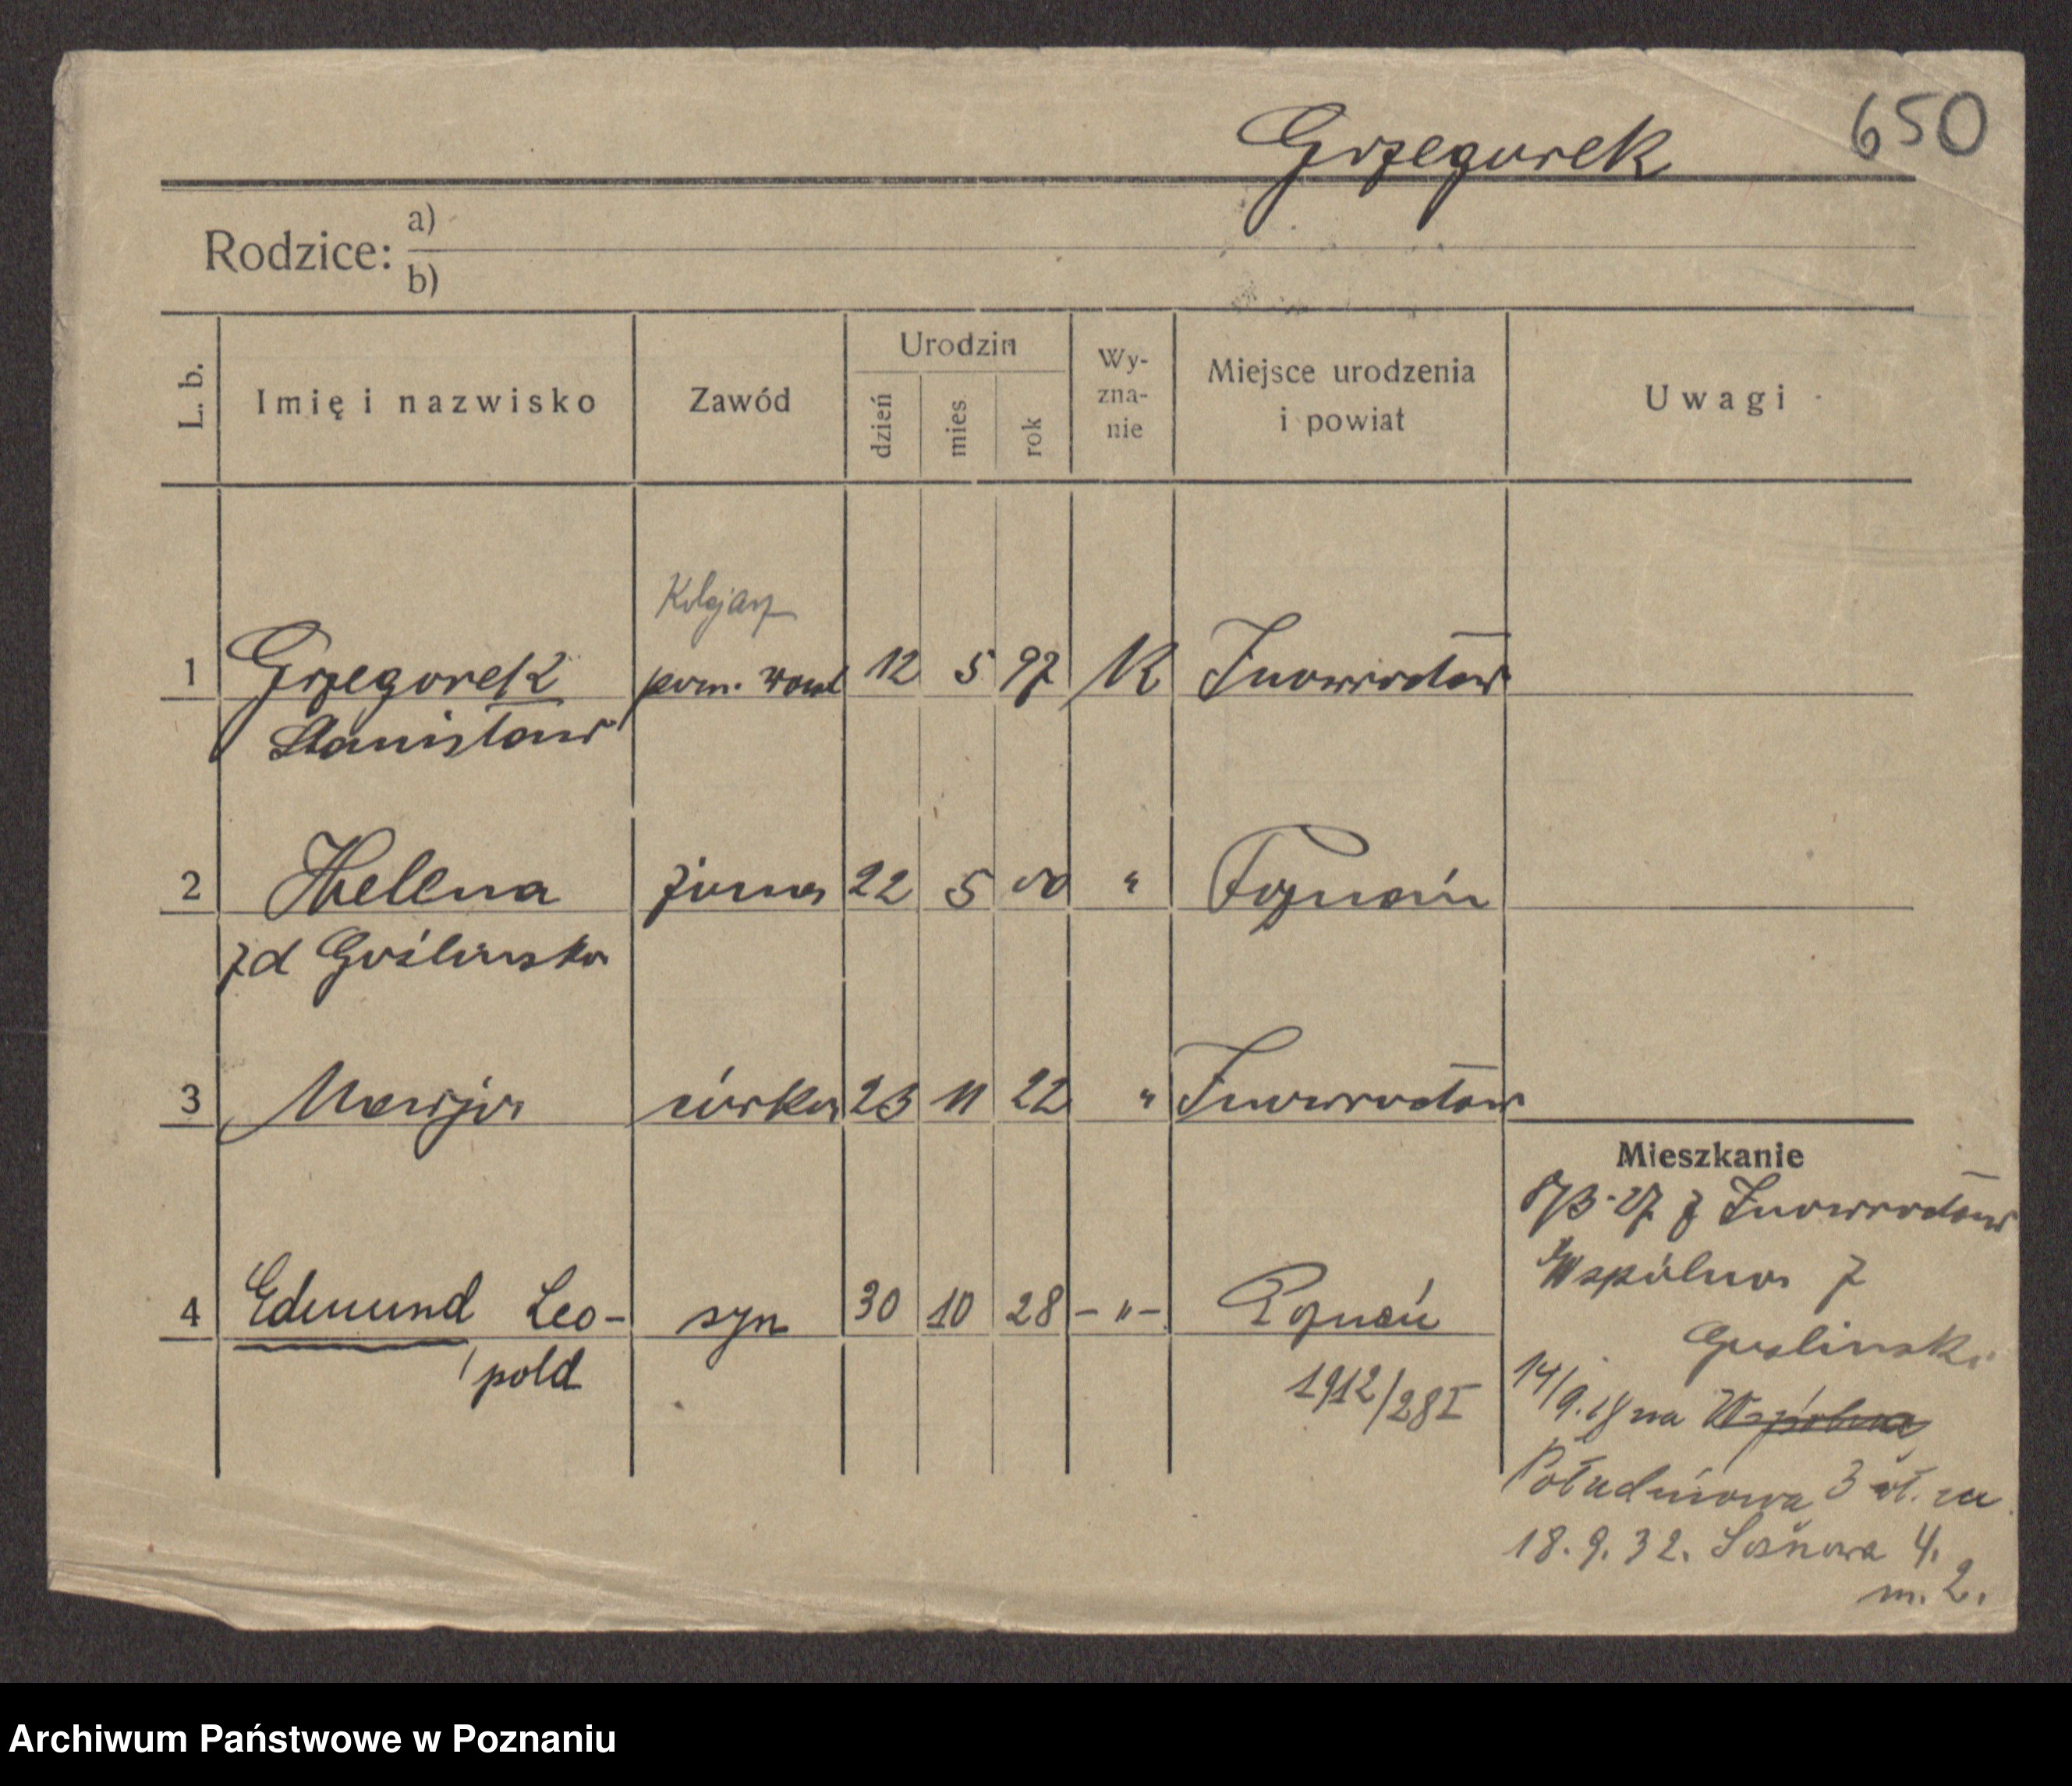 Grzegorek 650
Rodzice: a)
b)
L. b. Imię i nazwisko Zawód Urodzin dzień mies rok Wy-zna-nie Miejsce urodzenia i powiat Uwagi
Kolejarz
1 Grzegorek pom. 12 5 97 K Inowrocław
Stanisław
2 Helena żona 22 5 00 " Poznań
zd Goślinska
3 Marja córka 23 11 22 " Inowrocław
4 Edmund Leo- syn 30 10 28 – " – Poznań
pold 1912/28 I
Mieszkanie
z Inowrocław
Wspólna 7
Goslinski
14/9. na Wspólna
Południowa 3 wł. za
18. 9. 32. Sosnowa 4.
m. 2.
Archiwum Państwowe w Poznaniu